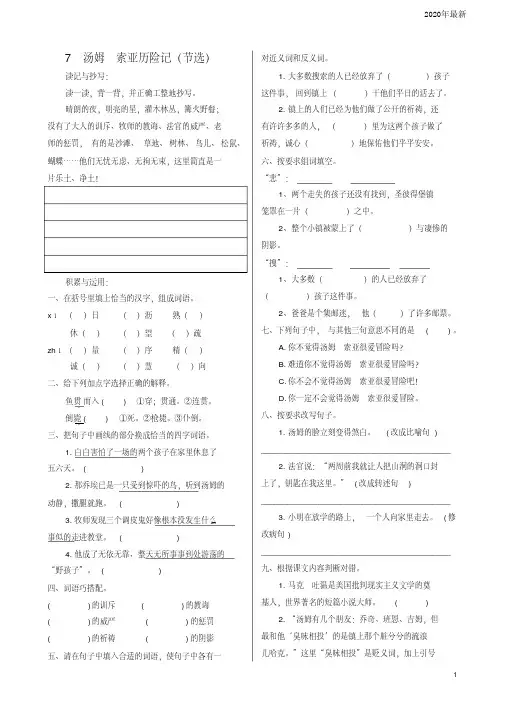 2020年最新
7 汤姆 索亚历险记（节选）
读记与抄写：
读一读，背一背，并正确工整地抄写。
晴朗的夜，明亮的星，灌木林丛，篝火野餐；
没有了大人的训斥、牧师的教诲、法官的威严、老
师的惩罚， 有的是沙滩、 草地、 树林、 鸟儿、 松鼠、
蝴蝶……他们无忧无虑、无拘无束，这里简直是一
片乐土、净土!
积累与运用：
一、在括号里填上恰当的汉字，组成词语。
xī （ ）日 （ ）沥 熟（ ）
休（ ） （ ）望 （ ）疏
zhì （ ）量 （ ）序 精（ ）
诚（ ） （ ）慧 （ ）向
二、给下列加点字选择正确的解释。
鱼贯而入（ ） ①穿；贯通。②连贯。
倒毙（ ） ①死。②枪毙。③仆倒。
三、把句子中画线的部分换成恰当的四字词语。
1. 白白害怕了一场的两个孩子在家里休息了
五六天。（ ）
2. 那乔埃已是一只受到惊吓的鸟，听到汤姆的
动静，撒腿就跑。（ ）
3. 牧师发现三个调皮鬼好像根本没发生什么
事似的走进教堂。（ ）
4. 他成了无依无靠、整天无所事事到处游荡的
“野孩子”。（ ）
四、词语巧搭配。
（ ）的训斥 （ ）的教诲
（ ）的威严 （ ）的惩罚
（ ）的祈祷 （ ）的阴影
五、请在句子中填入合适的词语，使句子中各有一
对近义词和反义词。
1. 大多数搜索的人已经放弃了（ ）孩子
这件事， 回到镇上（ ）干他们平日的活去了。
2. 镇上的人们已经为他们做了公开的祈祷，还
有许许多多的人，（ ）里为这两个孩子做了
祈祷，诚心（ ）地保佑他们平平安安。
六、按要求组词填空。
“悲”：
1、两个走失的孩子还没有找到，圣彼得堡镇
笼罩在一片（ ）之中。
2、整个小镇被蒙上了（ ）与凄惨的
阴影。
“搜”：
1、大多数（ ）的人已经放弃了
（ ）孩子这件事。
2、爸爸是个集邮迷， 他（ ）了许多邮票。
七、下列句子中， 与其他三句意思不同的是 （ ）。
A. 你不觉得汤姆 索亚很爱冒险吗？
B. 难道你不觉得汤姆 索亚很爱冒险吗？
C. 你不会不觉得汤姆 索亚很爱冒险吧！
D. 你一定不会觉得汤姆 索亚很爱冒险。
八、按要求改写句子。
1. 汤姆的脸立刻变得煞白。 （改成比喻句 ）
2. 法官说：“两周前我就让人把山洞的洞口封
上了，钥匙在我这里。”（改成转述句 ）
3. 小明在放学的路上， 一个人向家里走去。（修
改病句 ）
九、根据课文内容判断对错。
1. 马克 吐温是美国批判现实主义文学的奠
基人，世界著名的短篇小说大师。 （ ）
2. “汤姆有几个朋友：乔奇、班恩、吉姆，但
最和他‘臭味相投’的是镇上那个脏兮兮的流浪
儿哈克。”这里“臭味相投”是贬义词，加上引号
1